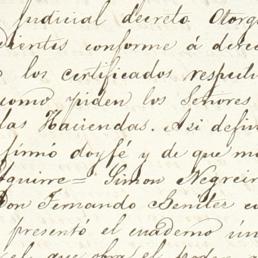 Judicial decreto Otorg
dientes conforme á dere
los certificados respec
como piden los Señores
las Haciendas. Asi defin
firmó doy fé y de que m
quirre = Simon Negrei
Don Fernando Benites e
presentó el cuaderno ún
el que obra el poder